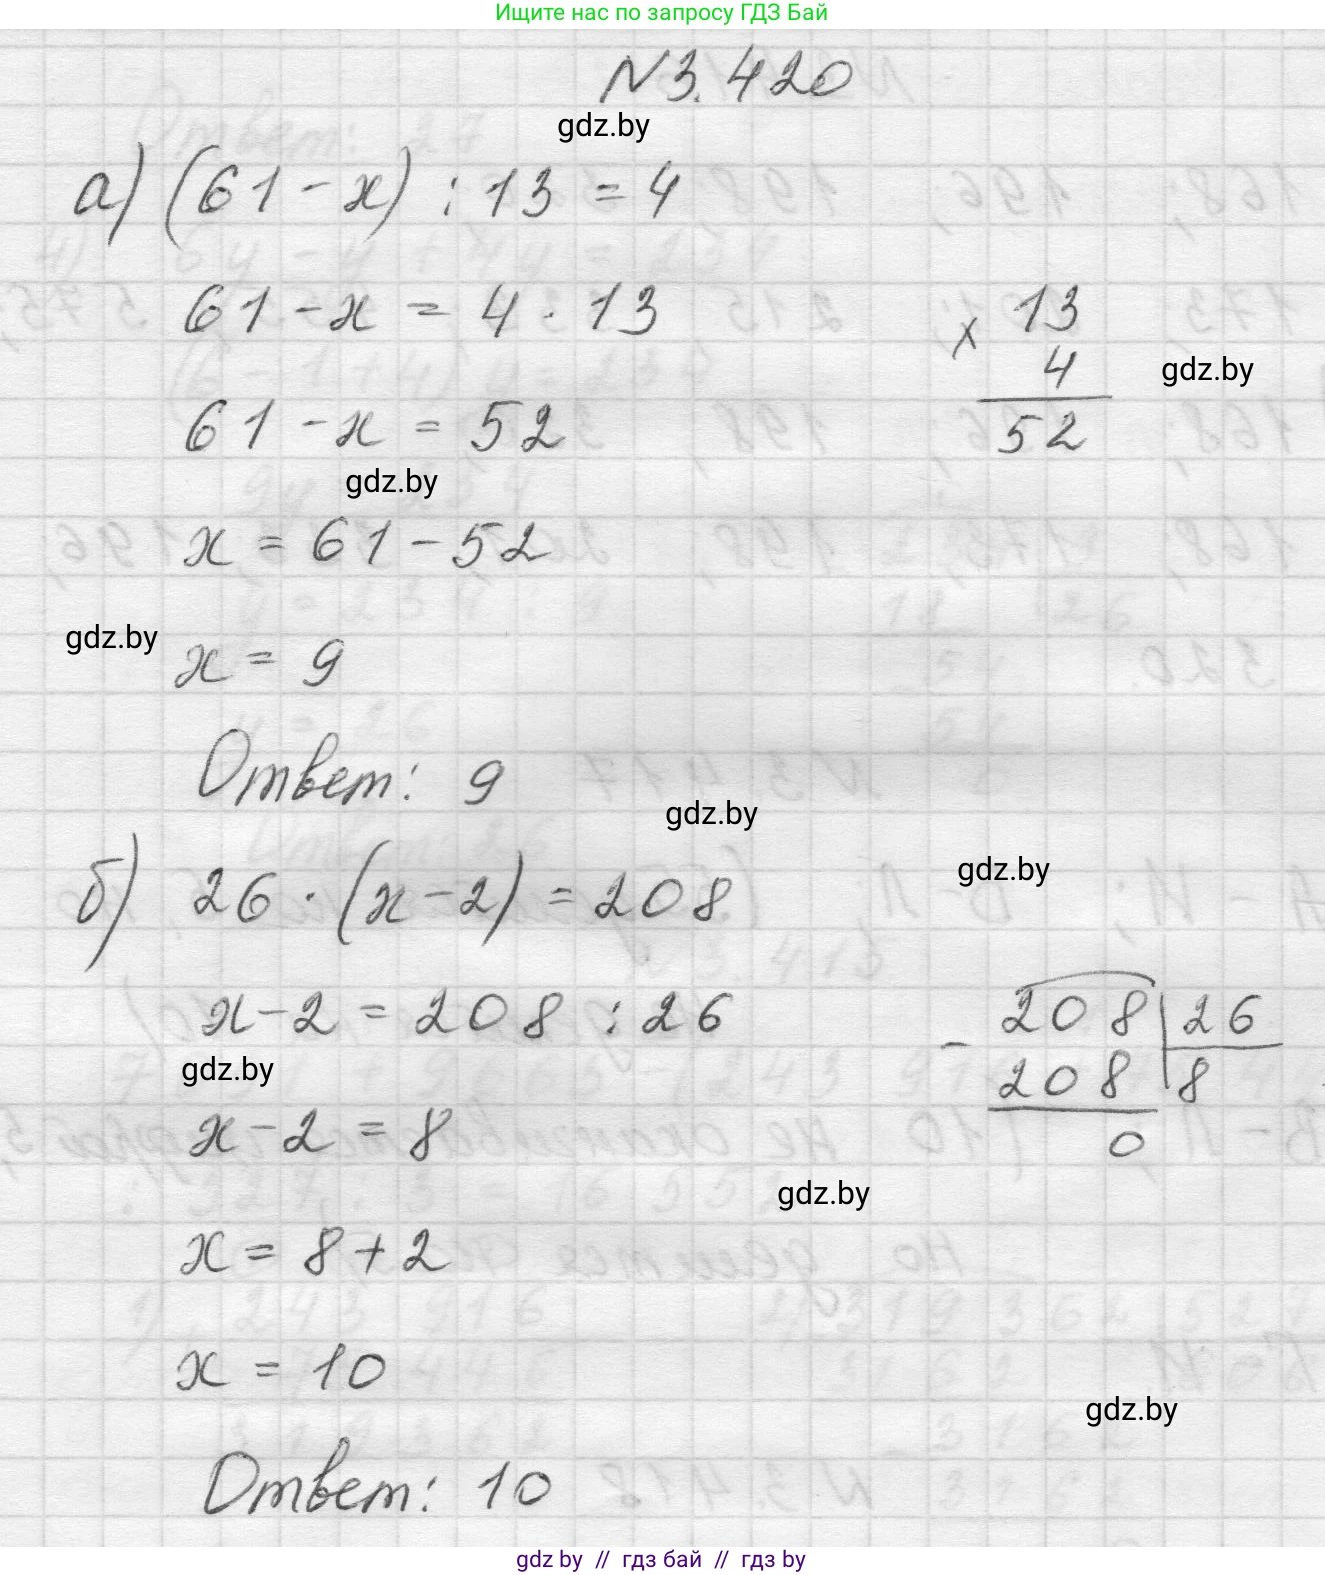 Ищите нас по запросу ГДЗ Бай
N3.420
gdz.by
а) (61-x) : 13 = 4
61-x = 4 · 13
× 13
4
52
gdz.by
61-x = 52
gdz.by
x = 61-52
gdz.by
x = 9
Ответ: 9
gdz.by
gdz.by
б) 26 · (x-2) = 208
x-2 = 208 : 26
- 208 | 26
208 | 8
0
gdz.by
x-2 = 8
gdz.by
x = 8+2
x = 10
gdz.by
Ответ: 10
gdz by // гдз бай // гдз by